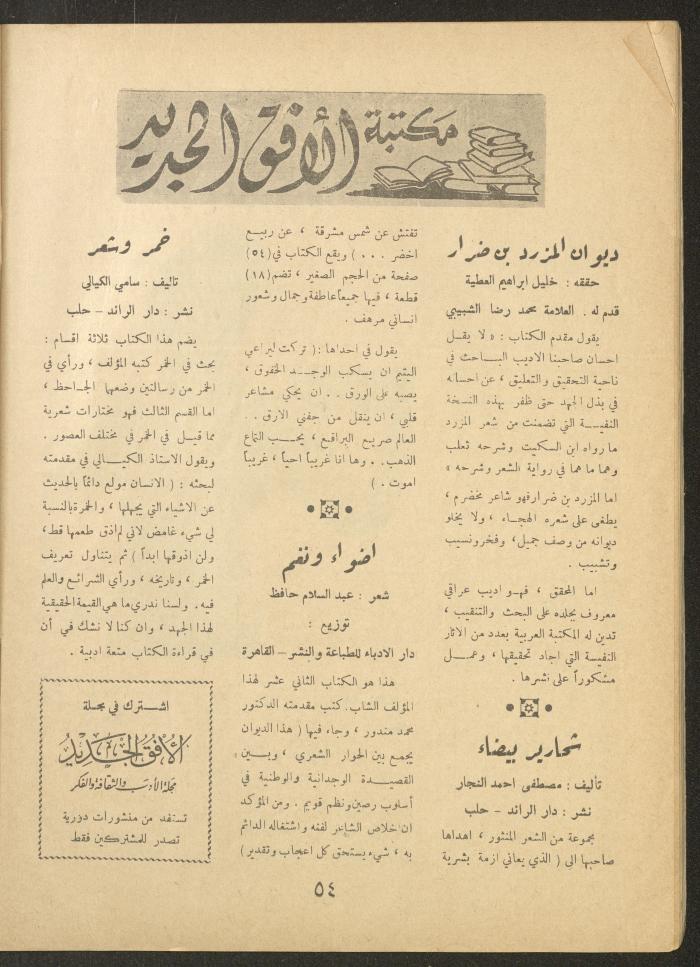 مكتبة الأفق الجديد
ديوان المزرد بن ضرار
حققه : خليل ابراهيم العطية
قدم له . العلامة محمد رضا الشبيبي
يقول مقدم الكتاب : « لا يقل
احسان صاحبنا الاديب الباحث في
ناحية التحقيق والتعليق ، عن احسانه
في بذل الجهد حتى ظفر بهذه النسخة
النفيسة التي تضمنت من شعر المزرد
ما رواه ابن السكيت وشرحه ثعلب
وهما ما هما في رواية الشعر وشرحه »
اما المزرد بن ضرار فهو شاعر مخضرم ،
يطغى على شعره الهجاء ، ولا يخلو
ديوانه من وصف جميل، وفخر ونسيب
وتشبيب .
اما المحقق ، فهو اديب عراقي
معروف بجلده على البحث والتنقيب ،
تدين له المكتبة العربية بعدد من الاثار
النفيسة التي اجاد تحقيقها ، وعمل
مشكوراً على نشرها .
شحارير بيضاء
تأليف : مصطفى احمد النجار
نشر : دار الرائد – حلب
مجموعة من الشعر المنثور ، اهداها
صاحبها الى ( الذي يعاني ازمة بشرية
تفتش عن شمس مشرقة ، عن ربيع
اخضر . . . ) ويقع الكتاب في (٥٤)
صفحة من الحجم الصغير ، تضم (١٨)
قطعة ، فيها جميعاً عاطفة وجمال وشعور
انساني مرهف .
يقول في احداها : ( تركت ليراعي
اليتيم ان يسكب الوجد الخفوق ،
يصبه على الورق . . ان يحكي مشاعر
قلبي ، ان ينقل من جفني الارق . .
العالم صريع البراقع ، يحب التماع
الذهب. . وها انا غريباً احيا ، غريباً
اموت . )
اضواء ونغم
شعر : عبد السلام حافظ
توزيع :
دار الادباء للطباعة والنشر – القاهرة
هذا هو الكتاب الثاني عشر لهذا
المؤلف الشاب. كتب مقدمته الدكتور
محمد مندور ، وجاء فيها ( هذا الديوان
يجمع بين الحوار الشعري ، وبين
القصيدة الوجدانية والوطنية في
أسلوب رصين ونظم قويم . ومن المؤكد
ان اخلاص الشاعر لفنه واشتغاله الدائم
به ، شيء يستحق كل اعجاب وتقدير )
خمر وشعر
تاليف : سامي الكيالي
نشر : دار الرائد – حلب
يضم هذا الكتاب ثلاثة اقسام :
بحث في الخمر كتبه المؤلف ، ورأي في
الخمر من رسالتين وضعها الجاحظ ،
اما القسم الثالث فهو مختارات شعرية
مما قيل في الخمر في مختلف العصور .
ويقول الاستاذ الكيالي في مقدمته
لبحثه : ( الانسان مولع دائماً بالحديث
عن الاشياء التي يجهلها ، والخمرة بالنسبة
لي شيء غامض لاني لم اذق طعمها قط،
ولن اذوقها ابداً ) ثم يتناول تعريف
الخمر ، وتاريخه ، ورأي الشرائع والعلم
فيه. ولسنا ندري ما هي القيمة الحقيقية
لهذا الجهد ، وان كنا لا نشك في أن
في قراءة الكتاب متعة ادبية .
اشترك في مجلة
الأفق الجديد
مجلة الأدب والثقافة والفكر
تستفد من منشورات دورية
تصدر للمشتركين فقط
٥٤